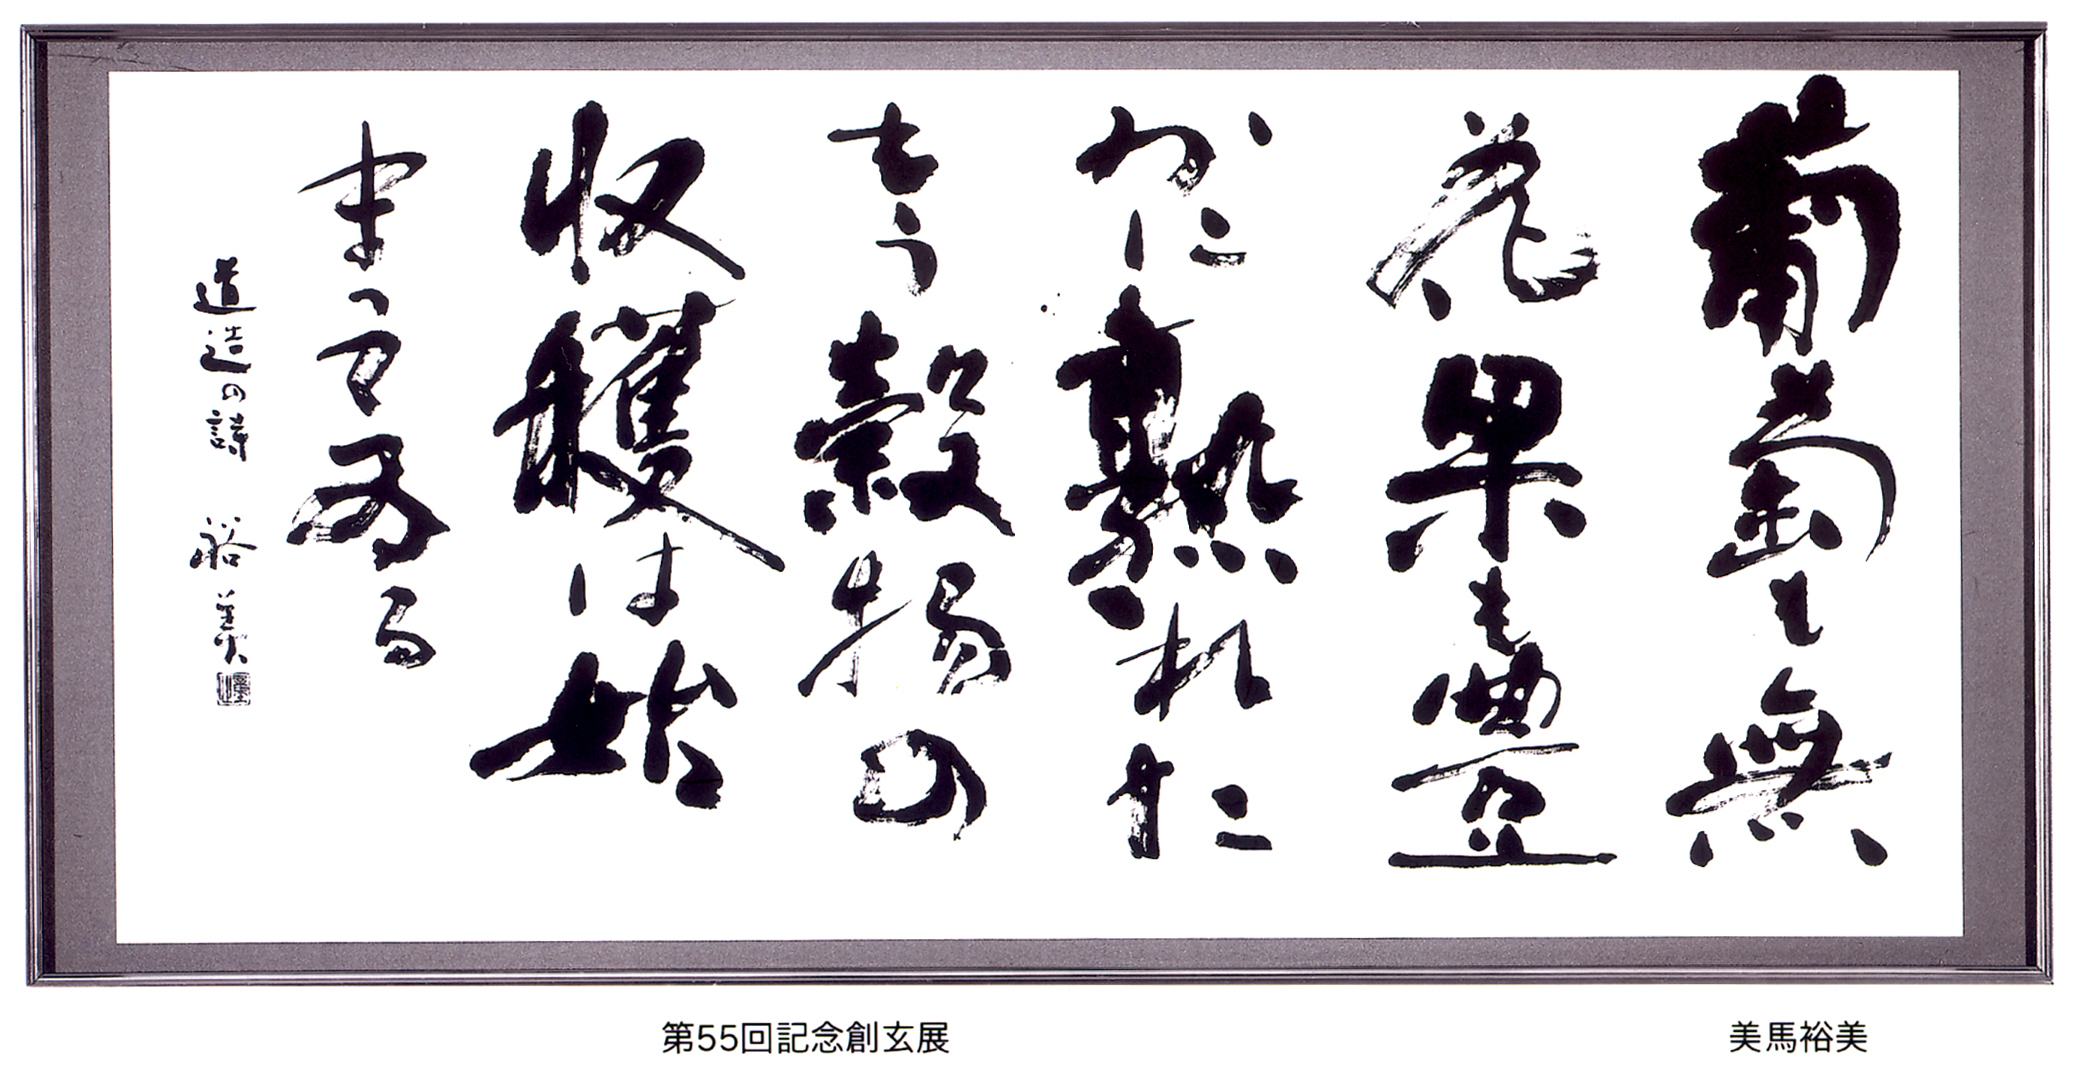 葡萄も無
花果も豊
かに熟れた
もう穀物の
収穫は始
まつてゐる
道造の詩 裕美
第55回記念創玄展
美馬裕美